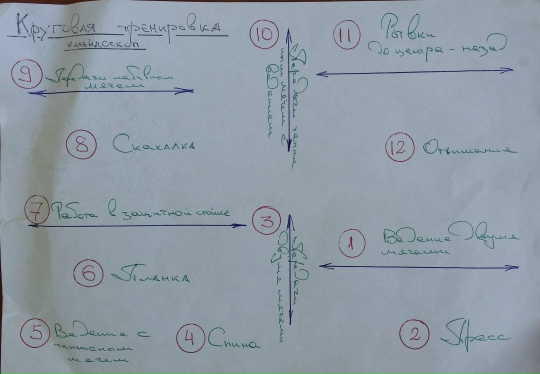 Круговая тренировка
калейдоскоп
9 Передачи набивным
мячем
10 Передачи теннис
мячем с
ведением
11 Рывки
до центра - назад
8 Скакалка
12 Отжимания
7 Работа в защитной стойке
3 Передачи
двумя мячами
1 Ведение двумя
мячами
6 Планка
5 Ведение с
теннисным
мячем
4 Спина
2 Пресс